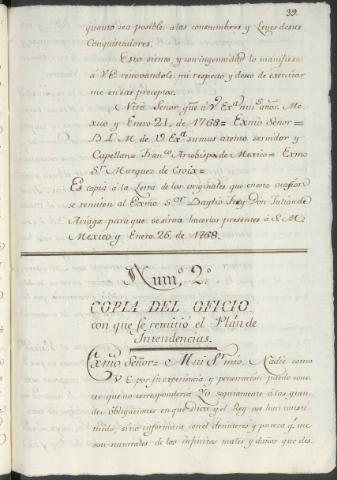 39.
quanto sea posible a las costumbres y Leyes de sus
Conquistadores.
Esto siento, y con ingenuidad lo manifiesto
a V.E. renovandole mi respecto, y deseo de exercitar
me en sus preceptos.
Ntro Señor gue a V. Exa. ms. años. Me
xico y Enero 21, de 1768 = Exmo Señor =
B. L. M. de V. Exa. su mas atento servidor y
Capellan = Franco. Arzobispo de Mexico = Exmo
Sr. Marques de Croix =
Es copia a la Letra de los originales que en esta ocasion
se remiten al Exmo. Sor. Baylio Frey Don Julian de
Arriaga para que se sirva hacerlos presentes a S. M.
Mexico y Enero 26, de 1768.
Num.o 2.o
COPIA DEL OFICIO
con que se remitió el Plan de
Intendencias.
Exmo. Señor = Mui Sr. mio, Nadie como
V E por su experiencia y penetracion puede cono
cer que no corresponderia Yo seguramente a las gran
des obligaciones en que Dios y el Rey nos han consti
tuido, si no informara con el desinteres y pureza q.e me
son naturales de los infinitos males y daños que des